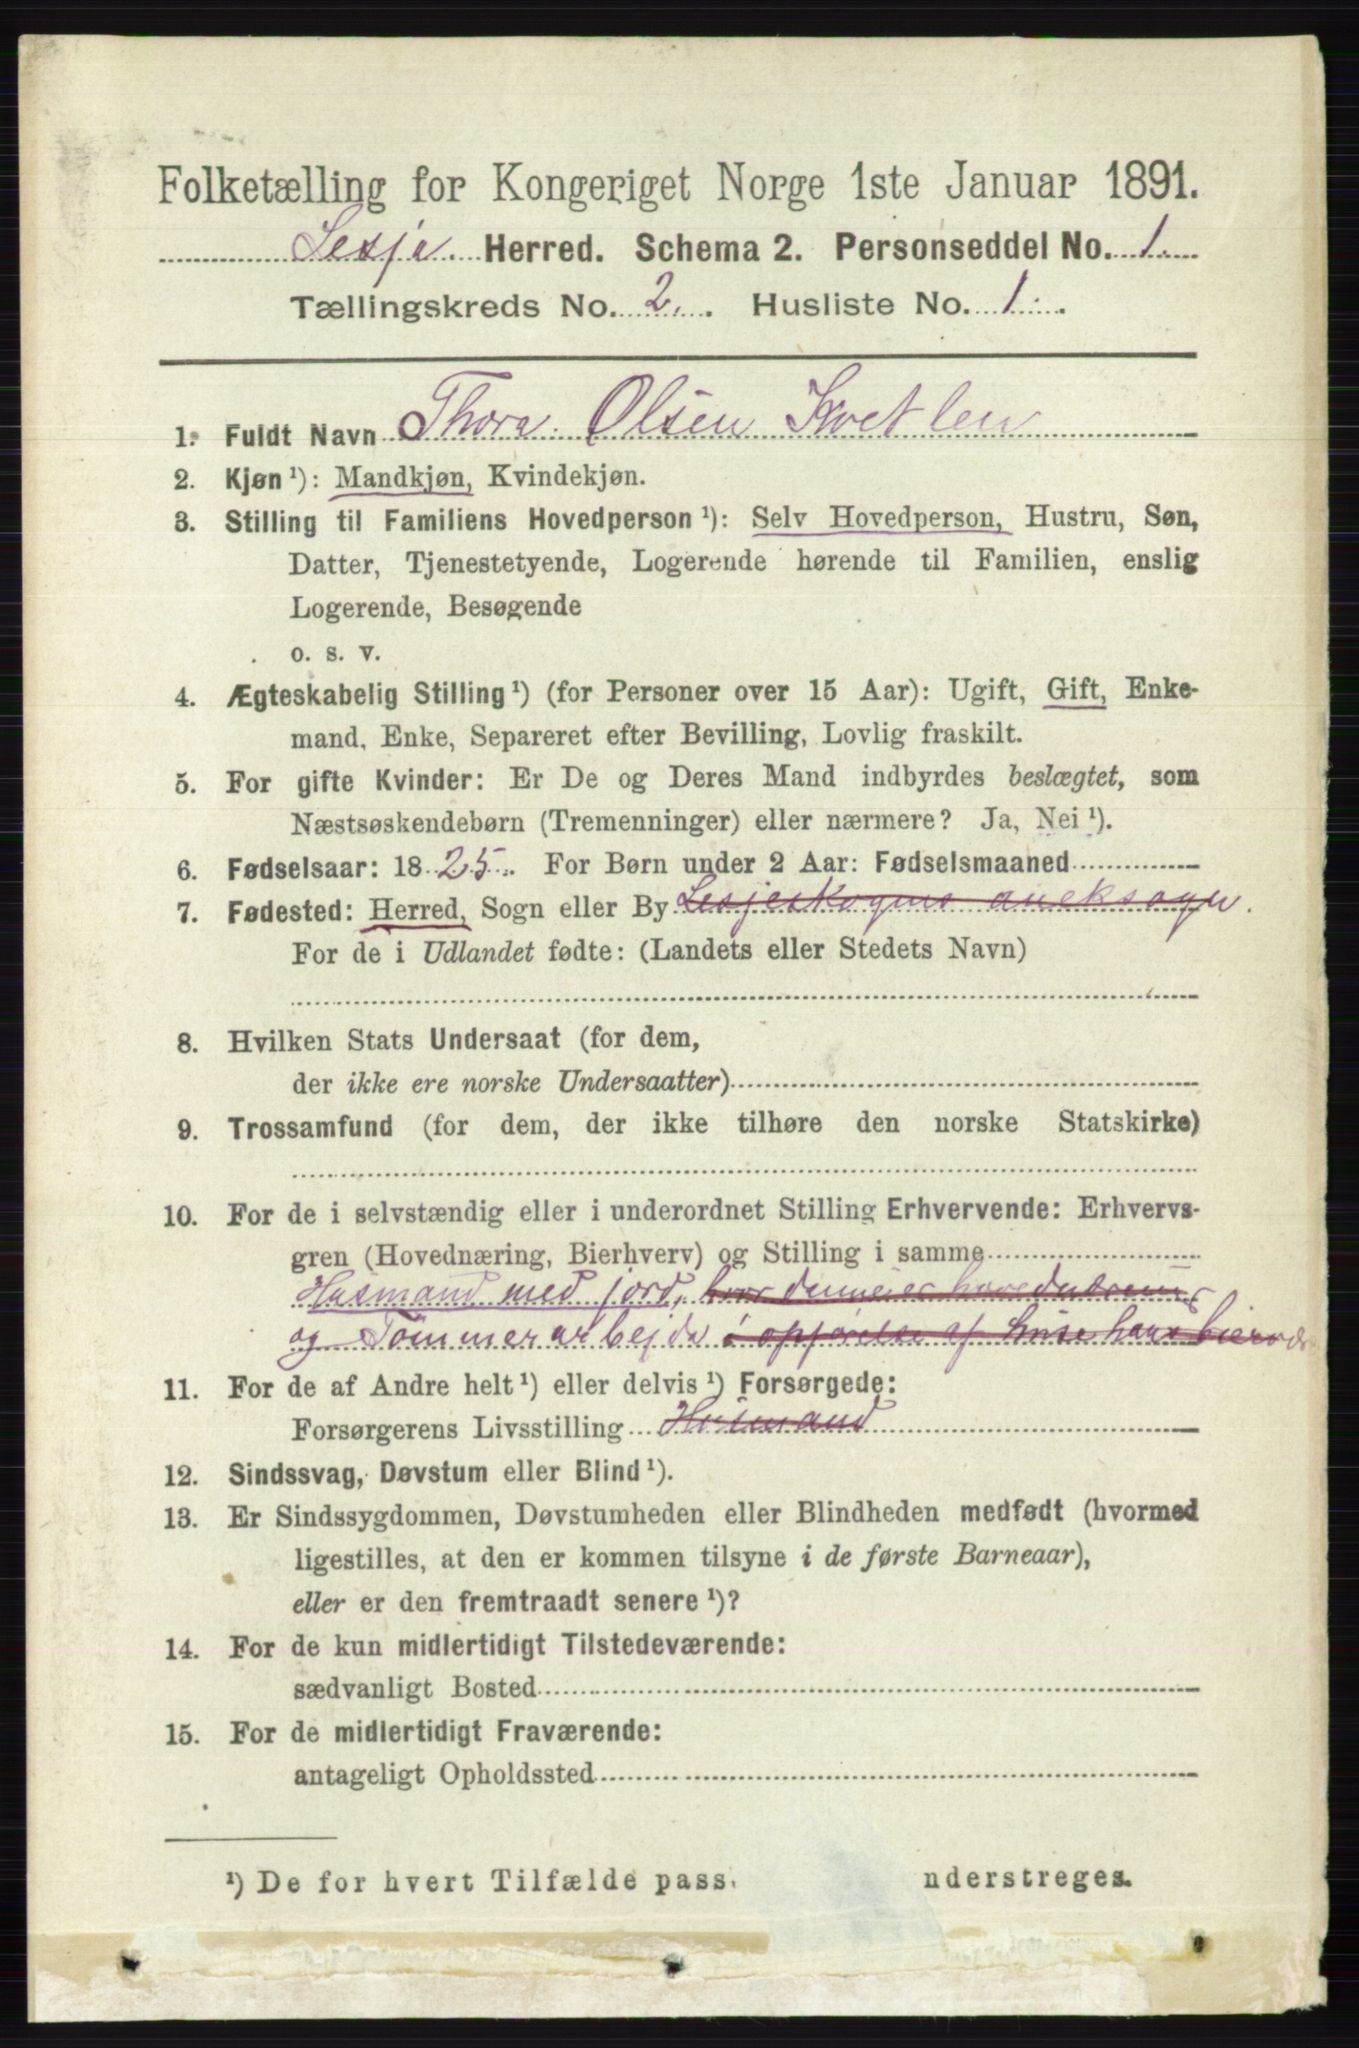 Folketælling for Kongeriget Norge 1ste Januar 1891.
Lesja. Herred. Schema 2. Personseddel No. 1.
Tællingskreds No. 2. Husliste No. 1.
1. Fuldt Navn Thora Olsen Kvetlen
2. Kjøn ¹): Mandkjøn, Kvindekjøn.
3. Stilling til Familiens Hovedperson ¹): Selv Hovedperson, Hustru, Søn,
Datter, Tjenestetyende, Logerende hørende til Familien, enslig
Logerende, Besøgende
o. s. v.
4. Ægteskabelig Stilling ¹) (for Personer over 15 Aar): Ugift, Gift, Enke-
mand, Enke, Separeret efter Bevilling, Lovlig fraskilt.
5. For gifte Kvinder: Er De og Deres Mand indbyrdes beslægtet, som
Næstsøskendebørn (Tremenninger) eller nærmere? Ja, Nei ¹).
6. Fødselsaar: 1825. For Børn under 2 Aar: Fødselsmaaned
7. Fødested: Herred, Sogn eller By Lesjeskogens aneksogn.
For de i Udlandet fødte: (Landets eller Stedets Navn)
8. Hvilken Stats Undersaat (for dem,
der ikke ere norske Undersaatter)
9. Trossamfund (for dem, der ikke tilhøre den norske Statskirke)
10. For de i selvstændig eller i underordnet Stilling Erhvervende: Erhvervs-
gren (Hovednæring, Bierhverv) og Stilling i samme
Husmand med jord, hvor denne er
og Tømmerarbejda i opførelse af huse hans
11. For de af Andre helt ¹) eller delvis ¹) Forsørgede:
Forsørgerens Livsstilling Husmand
12. Sindssvag, Døvstum eller Blind ¹).
13. Er Sindssygdommen, Døvstumheden eller Blindheden medfødt (hvormed
ligestilles, at den er kommen tilsyne i de første Barneaar),
eller er den fremtraadt senere ¹)?
14. For de kun midlertidigt Tilstedeværende:
sædvanligt Bosted
15. For de midlertidigt Fraværende:
antageligt Opholdssted
¹) De for hvert Tilfælde pass. nderstreges.